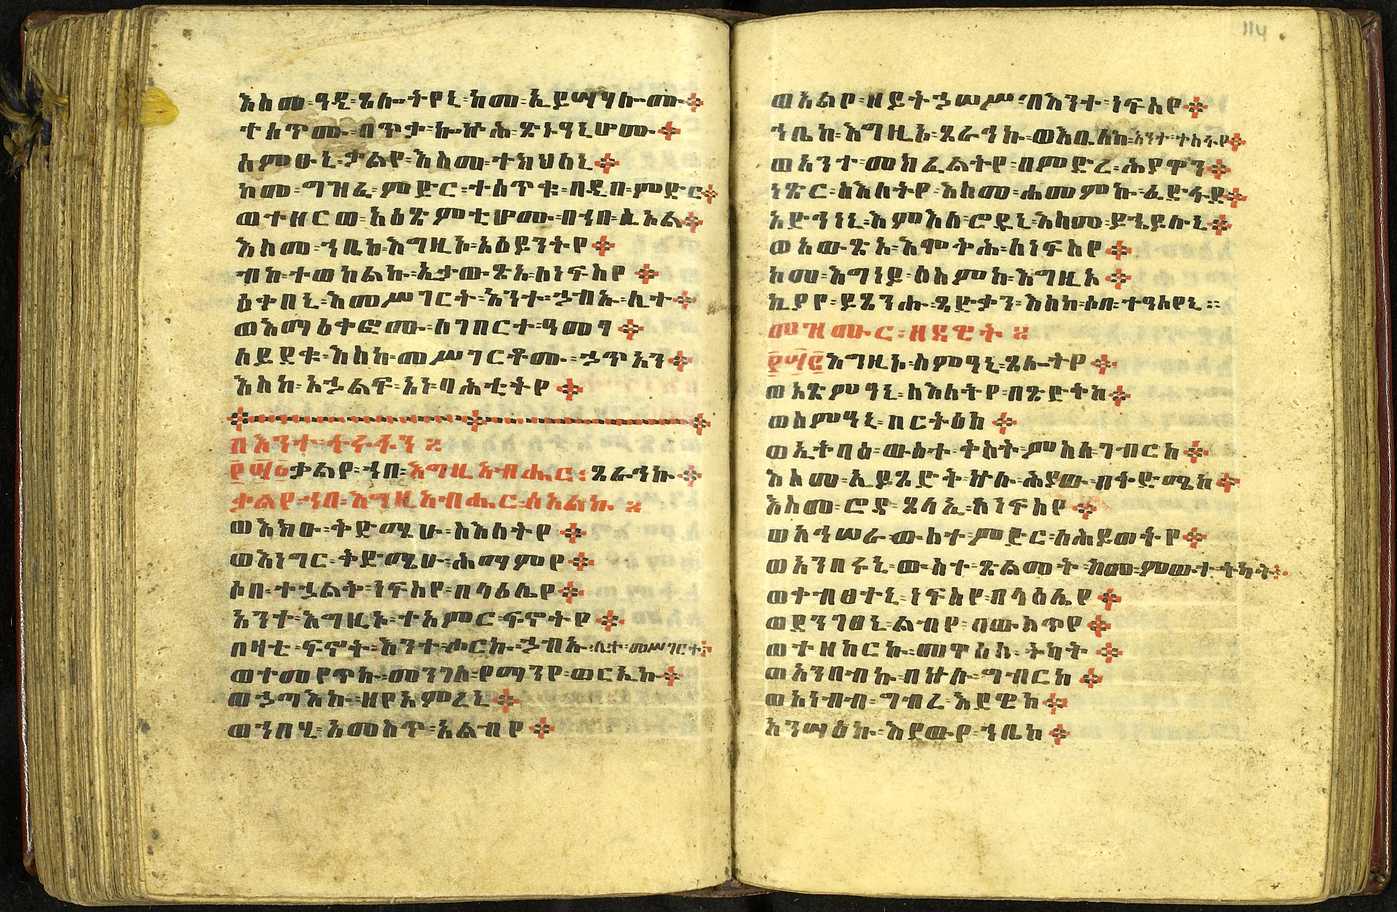 እስመ፡ዓዲ፡ጸሎትየኒ፡ከመ፡ኢይሣሃሎሙ፨
ተሰጥሙ፡በጥቃ፡ኰኵሕ፡ጽኑዓኒሆሙ፨
ሰምዑኒ፡ቃልየ፡እስመ፡ተክህለኒ፨
ከመ፡ግዝፈ፡ምድር፡ተሰጥቁ፡በዲበ፡ምድር፨
ወተዘርወ፡አዕጽምቲሆሙ፡በኀበ፡ሲኦል፨
እስመ፡ኀቤከ፡እግዚኦ፡አዕይንትየ፨
ብከ፡ተወከልኩ፡ኢታውጽኣ፡ለነፍስየ፨
ዕቀበኒ፡እመሥገርት፡እንተ፡ኃብኡ፡ሊተ፨
ወእማዕቅፎሙ፡ለገበርተ፡ዓመፃ፨
ለይደቁ፡እስከ፡መሥገርቶሙ፡ኃጥኣን፨
እስከ፡አኃልፍ፡አነ፡ባሕቲትየ፨
በእንተ፡ተሩፋን።
፻፵፩ቃልየ፡ኀበ፡እግዚአብሔር፡ጸራኅኩ፨
ቃልየ፡ኀበ፡እግዚአብሔር፡ሰአልኩ።
ወእክዑ፡ቅድሜሁ፡ለስእለትየ፨
ወእነግር፡ቅድሜሁ፡ሕማምየ፨
ሶበ፡ተኃልቅ፡ነፍስየ፡በላዕሌየ፨
አንተ፡እግዚኦ፡ተአምር፡ፍኖትየ፨
በዛቲ፡ፍኖት፡እንተ፡ሖርኩ፡ኃብኡ፡ሊተ፡መሥገርተ፨
ወተመየጥኩ፡መንገለ፡የማንየ፡ወርኢኩ፨
ወኃጣእኩ፡ዘየአምረኒ፨
ወኀበሂ፡አመስጥ፡አልብየ፨
114
ወአልቦ፡ዘይትኃሠሥ፡በእንተ፡ነፍስየ፨
ኀቤከ፡እግዚኦ፡ጸራኅኩ፡ወእቤለከ፡አንተ፡ተስፋየ፨
ወአንተ፡መክፈልትየ፡በምድረ፡ሕያዋን፨
ነጽር፡ስእለትየ፡እስመ፡ሐመምኩ፡ፈድፋደ፨
አድኅነኒ፡እምእለ፡ሮዱኒ፡እስመ፡ይኄይሉኒ፨
ወአውጽኣ፡እሞቅሕ፡ለነፍስየ፨
ከመ፡እግነይ፡ለስምከ፡እግዚኦ፨
ኪያየ፡ይጸንሑ፡ጻድቃን፡እስከ፡ሶበ፡ተዓስየኒ።
መዝሙር፡ዘዳዊት።
፻፵፪እግዚኦ፡ስምዓኒ፡ጸሎትየ፨
ወአጽምዓኒ፡ስእለትየ፡በጽድቅከ፨
ወስምዓኒ፡በርትዕከ፨
ወኢትባዕ፡ውስተ፡ቅስት፡ምስለ፡ገብርከ፨
እስመ፡ኢይጸድቅ፡ኵሉ፡ሕያው፡በቅድሜከ፨
እስመ፡ሮዳ፡ጸላኢ፡ለነፍስየ፨
ወአኅሠራ፡ውስተ፡ምድር፡ለሕይወትየ፨
ወአንበሩኒ፡ውስተ፡ጽልመት፡ከመ፡ምውተ፡ትካት፨
ወተብፅተኒ፡ነፍስየ፡በላዕሌየ፨
ወደንገፀኒ፡ልብየ፡በውስጥየ፨
ወተዘከርኩ፡መዋዕለ፡ትካት፨
ወአንበብኩ፡በኵሉ፡ግብርከ፨
ወአነብብ፡ግብረ፡እደዊከ፨
አንሣዕኩ፡እደውየ፡ኀቤከ፨